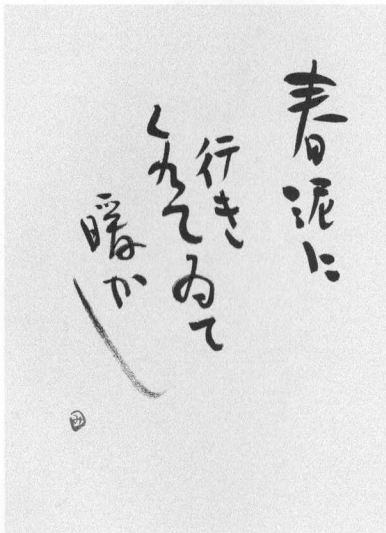 春泥に
行き
くれてゐて
暖かし
み